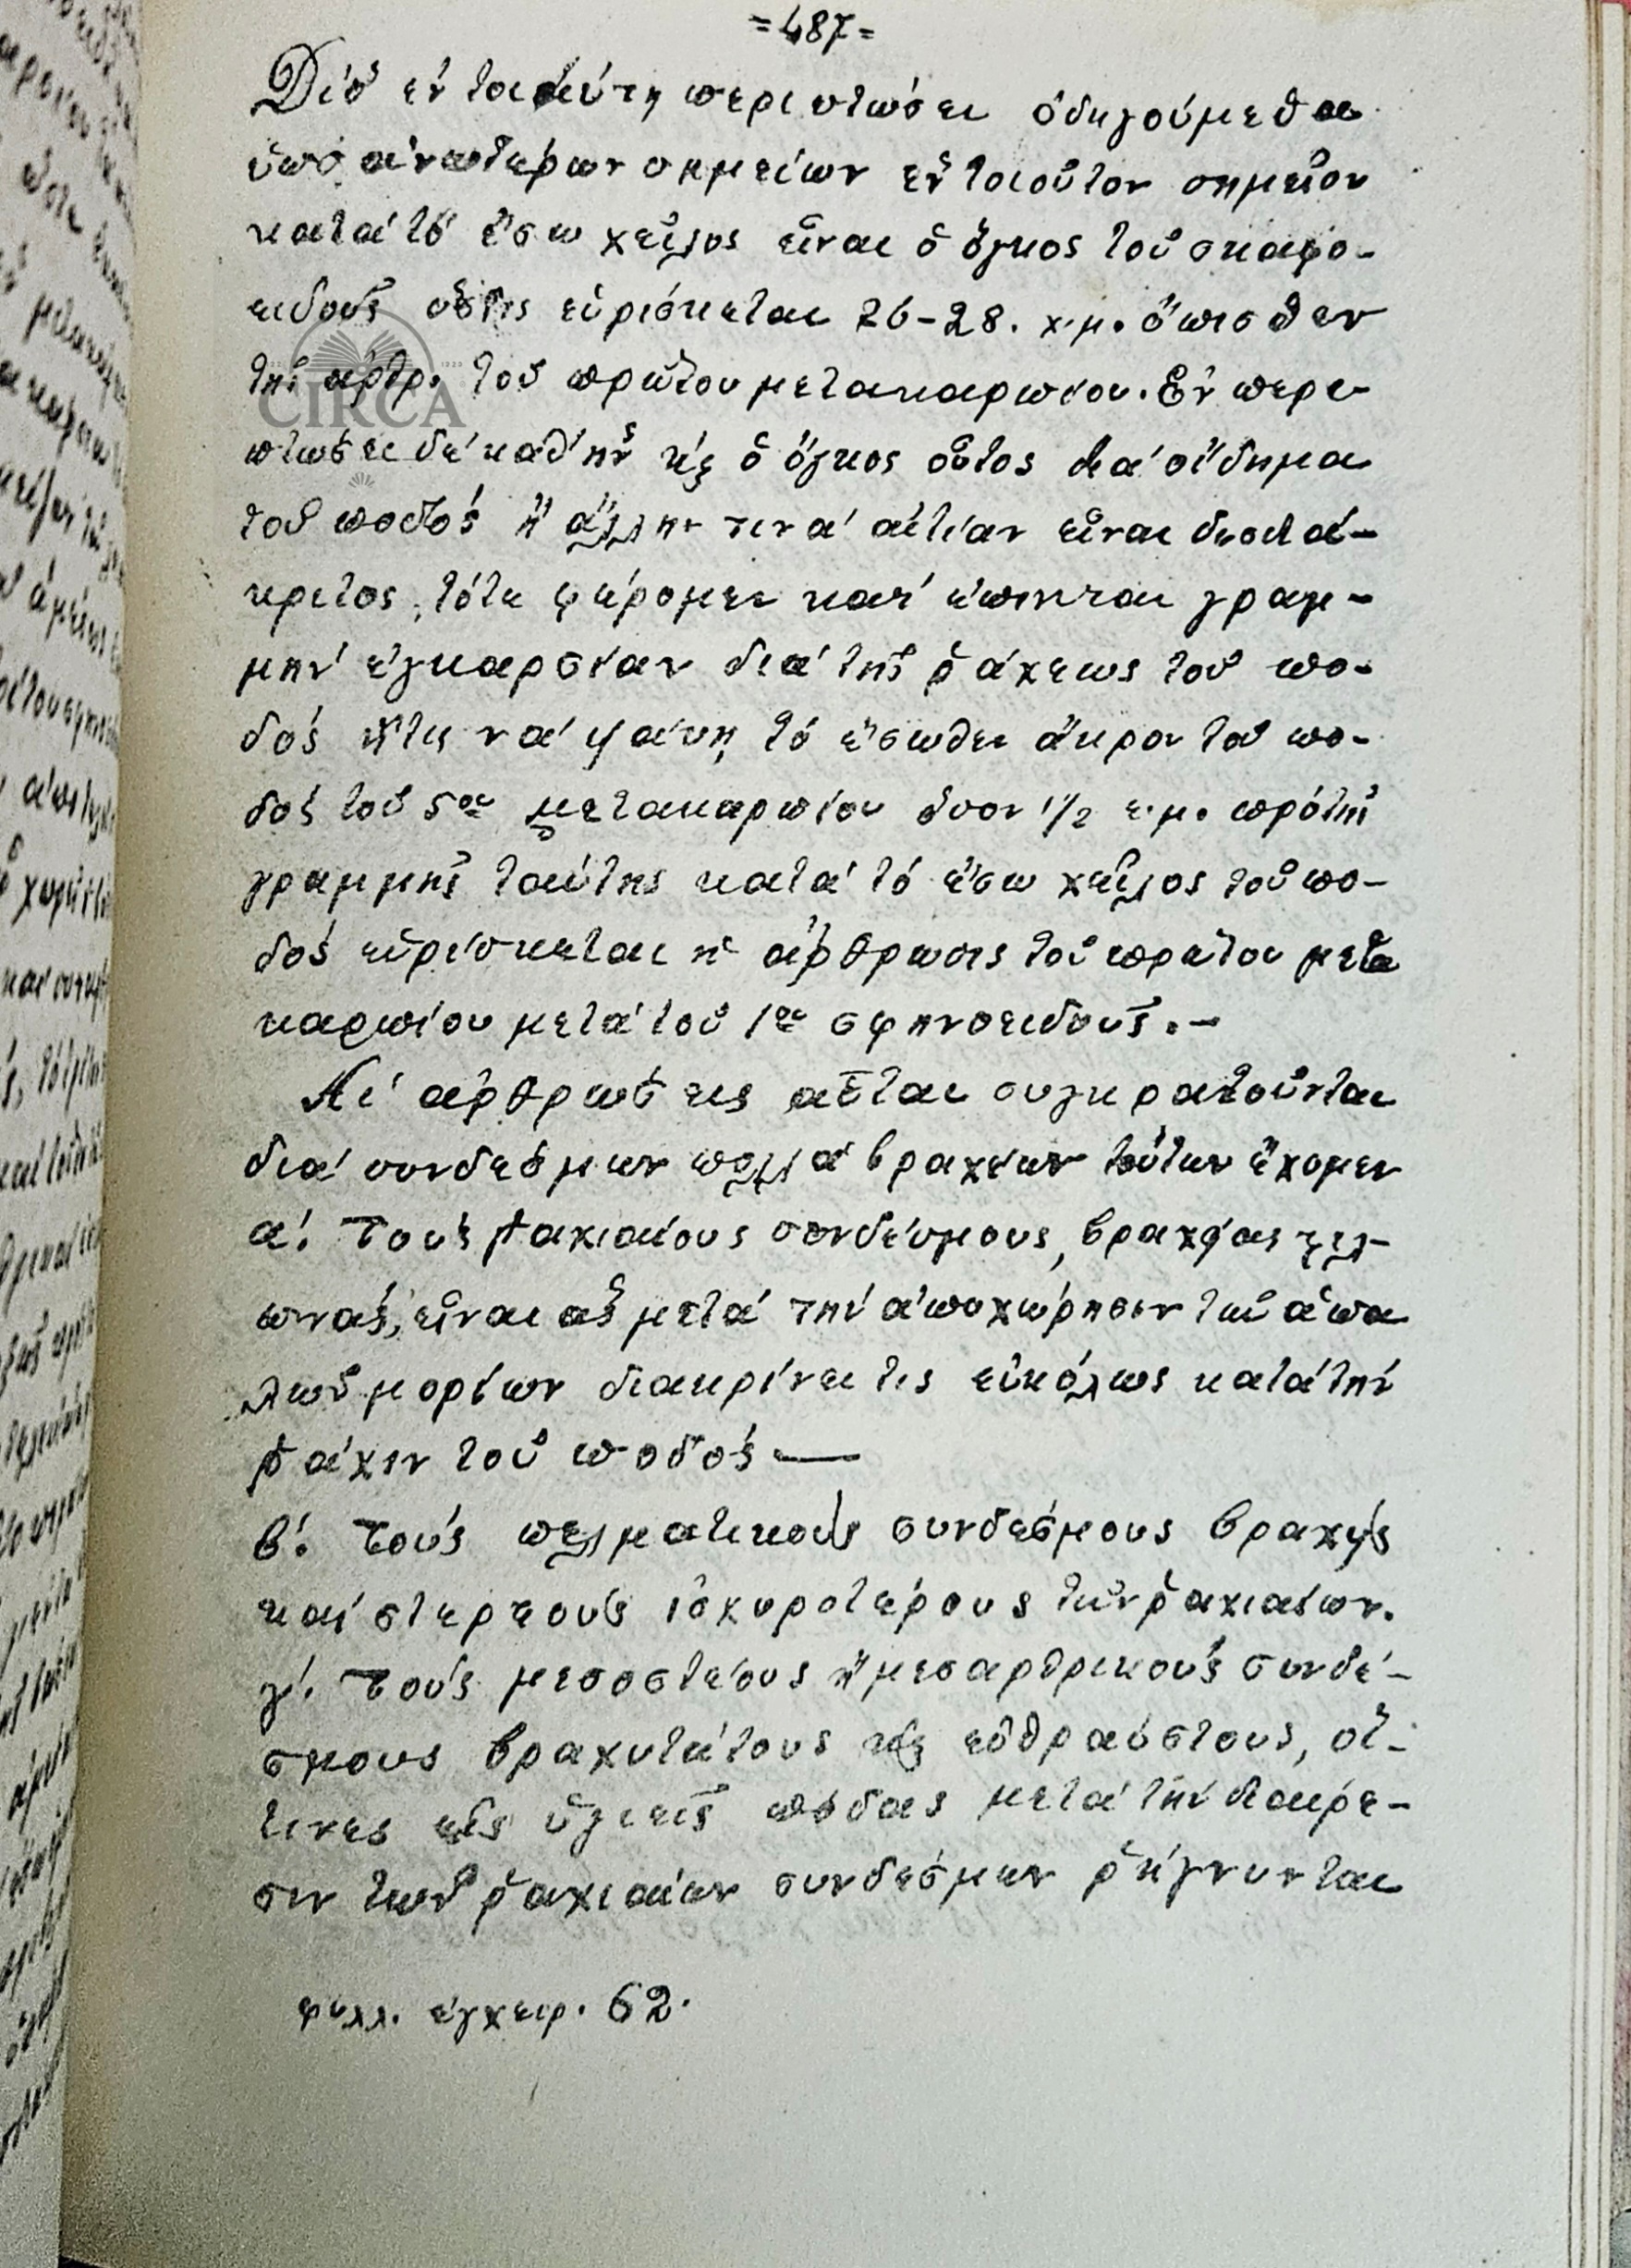 =487=
Διό ἐν τοιαύτῃ περιπτώσει ὁδηγούμεθα
ὑπό ἀνωτέρων σημείων ἓν τοιοῦτον σημεῖον
κατά τό ἔσω χεῖλος εἶναι ὁ ὄγκος τοῦ σκαφο-
ειδοῦς ὅστις εὑρίσκεται 26-28. χ.μ. ὄπισθεν
τῆς ἀρθρ. τοῦ πρώτου μετακαρπίου. Ἐν περι-
πτώσει δέ καθ' ἥν κ ὁ ὄγκος οὗτος διά οἴδημα
τοῦ ποδός ἤ ἄλλην τινά αἰτίαν εἶναι δυσδιά-
κριτος, τότε φέρομεν κατ' γραμ-
μήν ἐγκαρσίαν διά τῆς ῥάχεως τοῦ πο-
δός ἥτις νά ψαύῃ τό ἔσωθεν ἄκρον τοῦ πο-
δός τοῦ 5ου μετακαρπίου ὅσον 1½ ε.μ. πρό τῆς
γραμμῆς ταύτης κατά τό ἔσω χεῖλος τοῦ πο-
δός εὑρίσκεται ἡ ἄρθρωσις τοῦ πρώτου μετα
καρπίου μετά τοῦ 1ου σφηνοειδοῦς.-
Αἱ ἀρθρώσεις αὗται συγκρατοῦνται
διά συνδέσμων πολλά βραχέων τούτων ἔχομεν
α! Τούς ῥαχιαίους συνδέσμους, βραχεῖς
εἶναι ἅς μετά τήν ἀποχώρησιν τῶν ἁπα
λῶν μορίων διακρίνει τις εὐκόλως κατά τήν
ῥάχιν τοῦ ποδός —
β! τούς πελματικούς συνδέσμους βραχεῖς
καί στερεούς ἰσχυροτέρους τῶν ῥαχιαίων.
γ! τούς μεσοστέους ἤ μεσαρθρικούς συνδέ-
σμους βραχυτάτους κ εὐθραύστους, οἵ-
τινες εἰς ὑγιεῖς πόδας μετά τήν διαίρε-
σιν τῶν ῥαχιαίων συνδέσμων ῥήγνυνται
φυλλ. ἐγχειρ. 62.
CIRCA